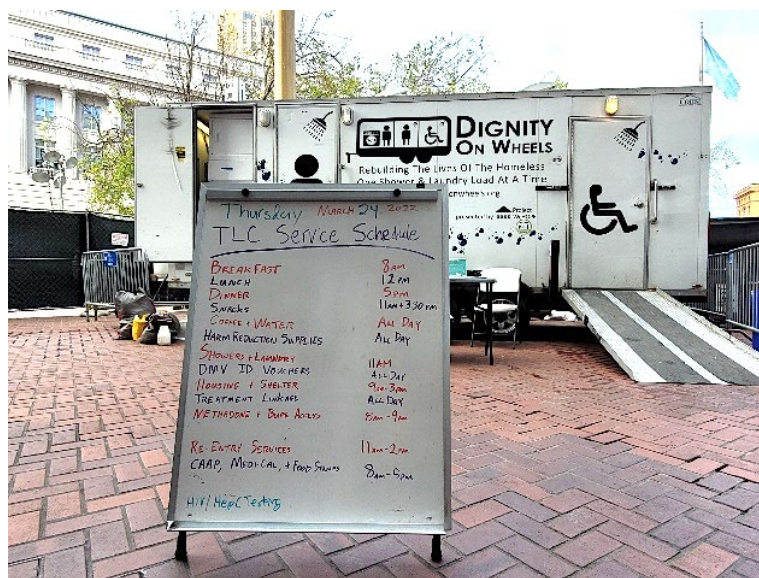 DIGNITY
ON WHEELS
Rebuilding The Lives Of The Homeless
One Shower & Laundry Load At A Time
onwheels.org
presented by
Project
WeHOPE
Thursday MARCH 24 2022
TLC Service Schedule
BREAKFAST 8AM
LUNCH 12PM
DINNER 5PM
SNACKS 11AM + 3:30PM
COFFEE + WATER ALL DAY
HARM REDUCTION SUPPLIES ALL DAY
SHOWERS + LAUNDRY 11AM
DMV ID VOUCHERS ALL DAY
HOUSING + SHELTER 9AM-3PM
TREATMENT LINKAGE ALL DAY
METHADONE + BUPE ACCESS 8AM-9AM
RE-ENTRY SERVICES 11AM-2PM
CAAP, MEDICAL, + FOOD STAMPS 8AM-5PM
HIV/HepC Testing